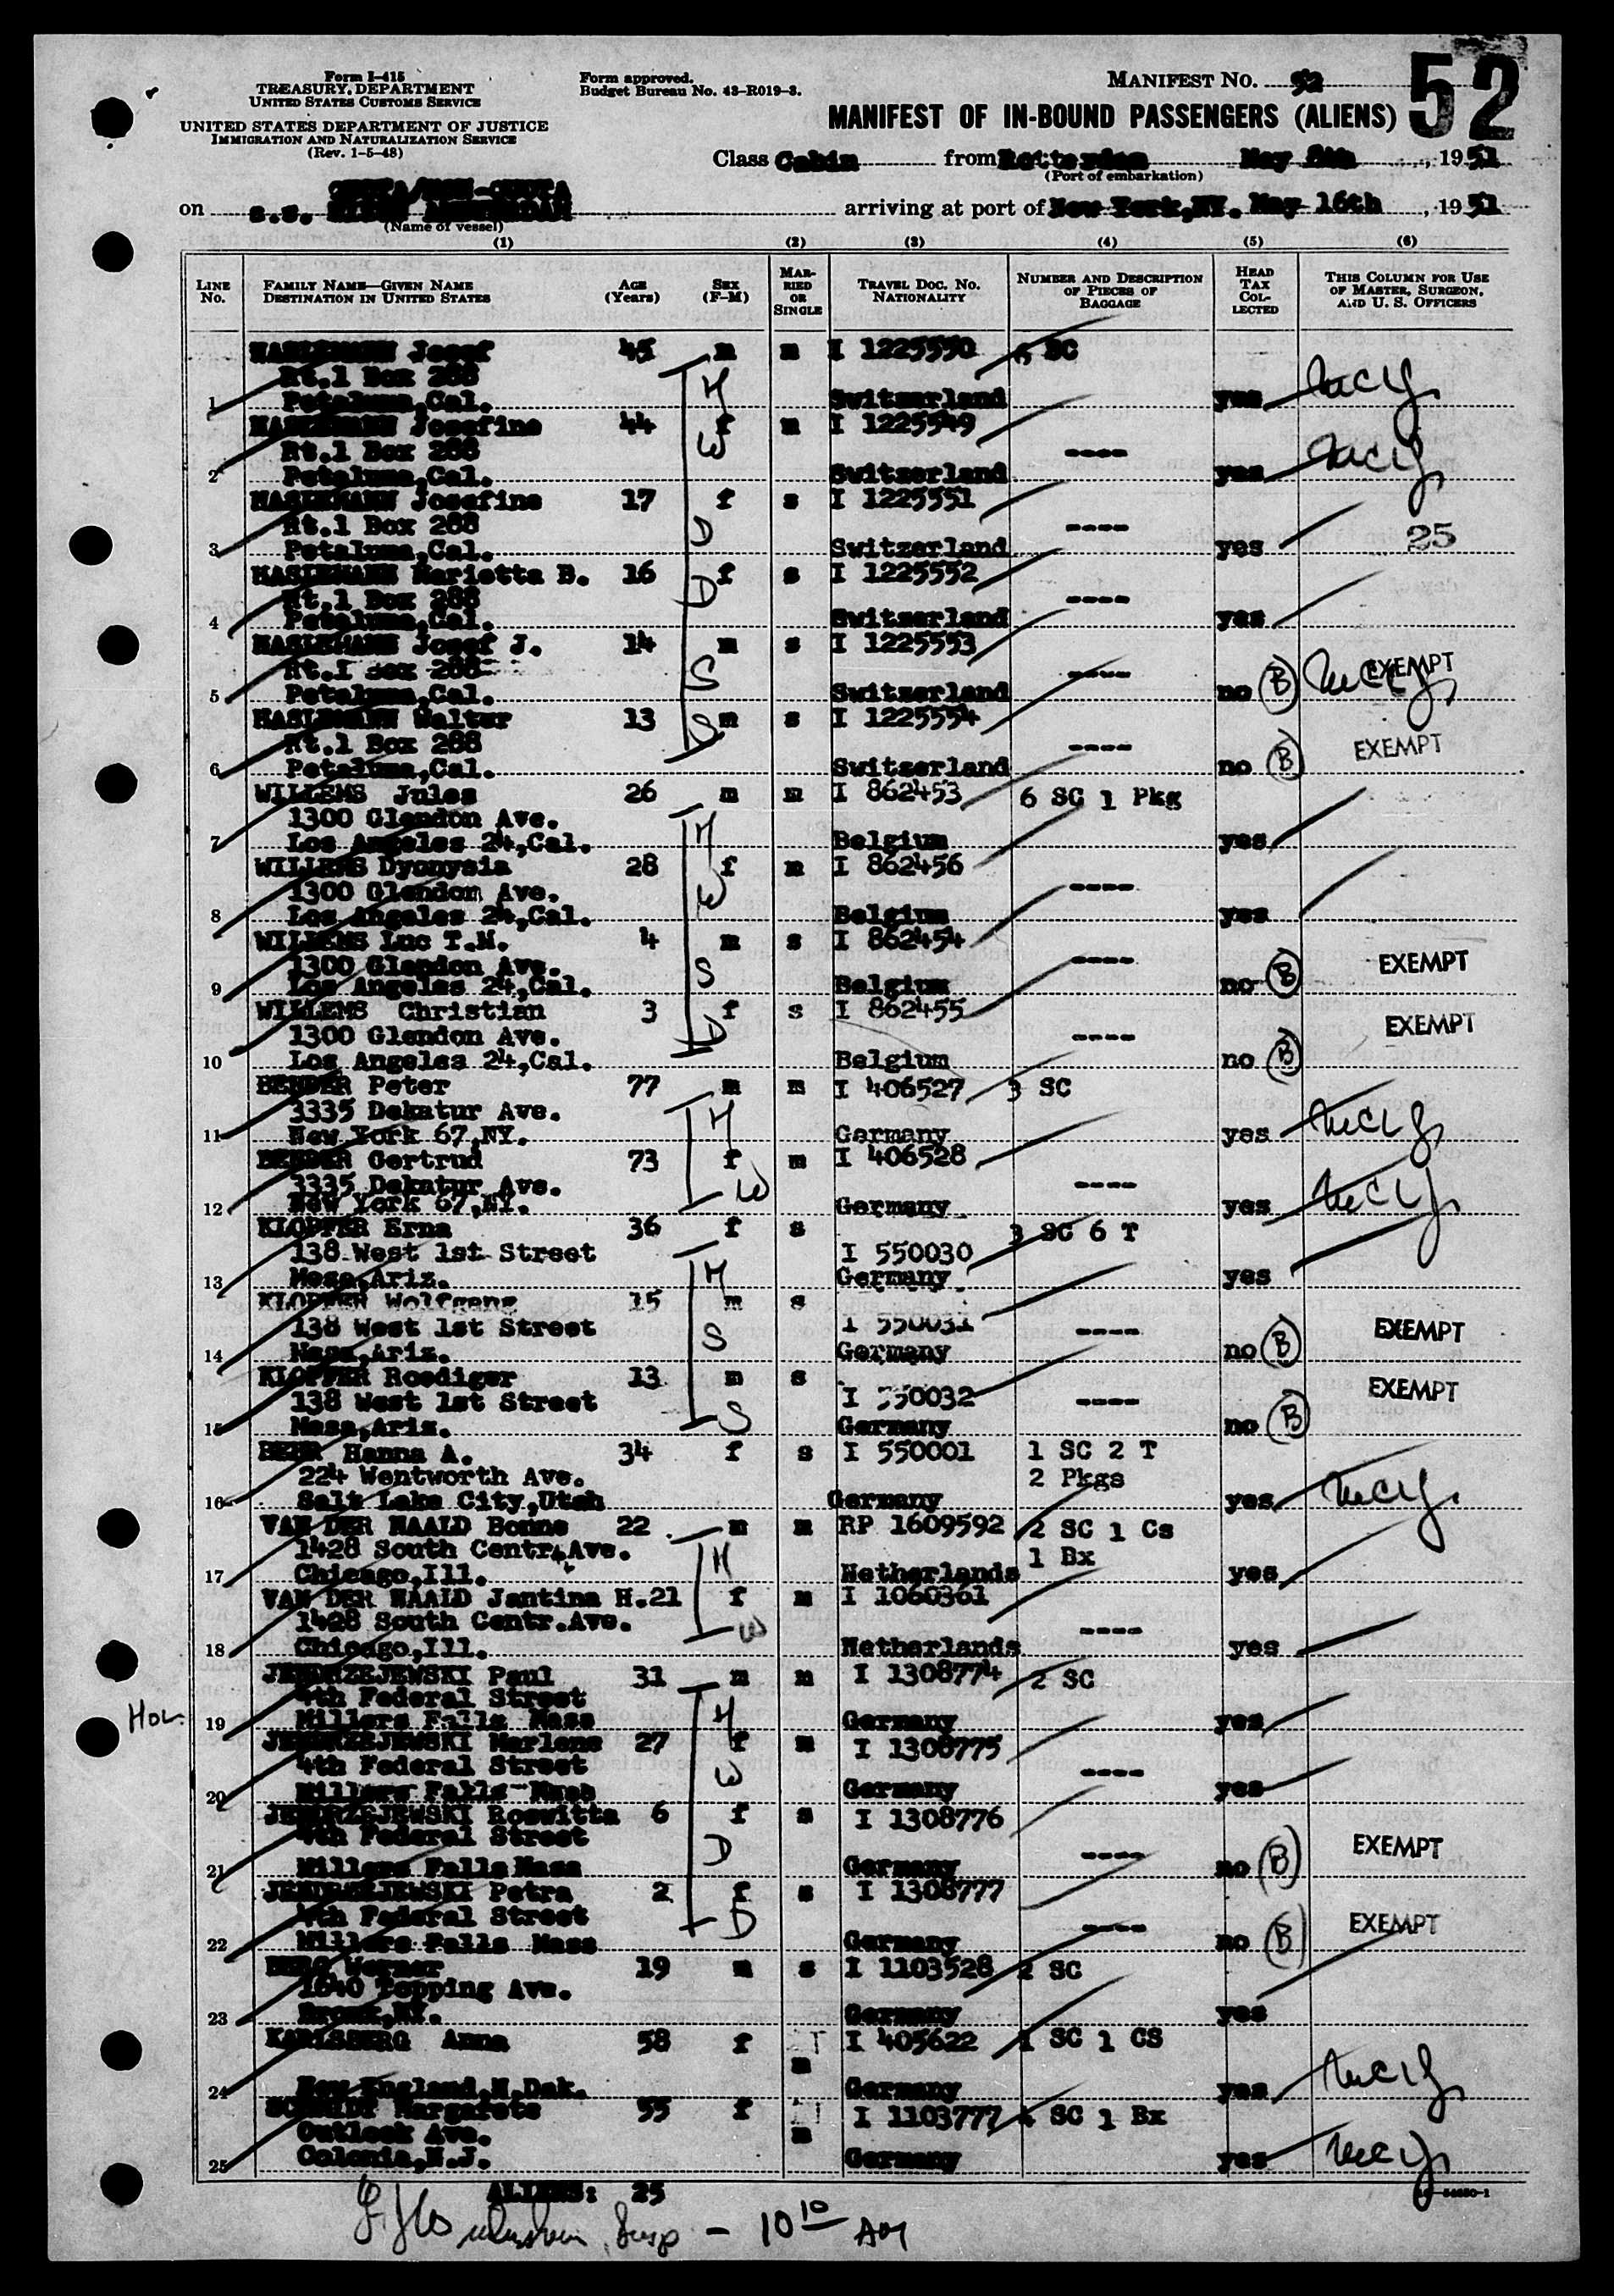 Form I-415
TREASURY DEPARTMENT
UNITED STATES CUSTOMS SERVICE
UNITED STATES DEPARTMENT OF JUSTICE
IMMIGRATION AND NATURALIZATION SERVICE
(Rev. 1-5-48)
Form approved.
Budget Bureau No. 43-R019-3.
MANIFEST NO. 52
52
MANIFEST OF IN-BOUND PASSENGERS (ALIENS)
Class Cabin from Rotterdam May 8th, 1951
(Port of embarkation)
on s.s. NIEUW AMSTERDAM arriving at port of New York, NY. May 16th, 1951
(Name of vessel)
(1) (2) (3) (4) (5) (6)
LINE No. FAMILY NAME—GIVEN NAME DESTINATION IN UNITED STATES AGE (Years) SEX (F-M) MARRIED OR SINGLE TRAVEL DOC. NO. NATIONALITY NUMBER AND DESCRIPTION OF PIECES OF BAGGAGE HEAD TAX COLLECTED THIS COLUMN FOR USE OF MASTER, SURGEON, AND U. S. OFFICERS
Josef 45 m m I 1225550 SC
Rt.1 Box 288 H
1 Petaluma,Cal. Switzerland yes
Josefine 44 f m I 1225549
Rt.1 Box 288 W ----
2 Petaluma,Cal. Switzerland yes
Josefine 17 f s I 1225551
Rt.1 Box 288 D ----
3 Petaluma,Cal. Switzerland yes 25
Marietta B. 16 f s I 1225552
Rt.1 Box 288 D ----
4 Petaluma,Cal. Switzerland yes
Josef J. 14 m s I 1225553
Rt.1 Box 288 S ---- EXEMPT
5 Petaluma,Cal. Switzerland no B
Walter 13 m s I 1225554
Rt.1 Box 288 S ---- EXEMPT
6 Petaluma,Cal. Switzerland no B
WILLEMS Jules 26 m m I 862453 6 SC 1 Pkg
1300 Glendon Ave. H
7 Los Angeles 24,Cal. Belgium yes
WILLEMS Dyonysia 28 f m I 862456
1300 Glendon Ave. W ----
8 Los Angeles 24,Cal. Belgium yes
WILLEMS Luc T.M. 4 m s I 862454
1300 Glendon Ave. S ---- EXEMPT
9 Los Angeles 24,Cal. Belgium no B
WILLEMS Christian 3 f s I 862455
1300 Glendon Ave. D ---- EXEMPT
10 Los Angeles 24,Cal. Belgium no B
BENDER Peter 77 m m I 406527 3 SC
3335 Dekatur Ave. H
11 New York 67,NY. Germany yes
BENDER Gertrud 73 f m I 406528
3335 Dekatur Ave. W ----
12 New York 67,NY. Germany yes
KLOPFER Erna 36 f s 3 SC 6 T
138 West 1st Street I 550030
13 Mesa,Ariz. H Germany yes
KLOPFER Wolfgang 15 m s
138 West 1st Street I 550031 ---- EXEMPT
14 Mesa,Ariz. S Germany no B
KLOPFER Roediger 13 m s
138 West 1st Street I 550032 ---- EXEMPT
15 Mesa,Ariz. S Germany no B
Hanna A. 34 f s I 550001 1 SC 2 T
224 Wentworth Ave. 2 Pkgs
16 Salt Lake City,Utah Germany yes
VAN DER NAALD Bonne 22 m m RP 1609592 2 SC 1 Cs
1428 South Centr.Ave. H 1 Bx
17 Chicago,Ill. Netherlands yes
VAN DER NAALD Jantina H.21 f m I 1060361
1428 South Centr.Ave. W ----
18 Chicago,Ill. Netherlands yes
JENDRZEJEWSKI Paul 31 m m I 1308774 2 SC
4th Federal Street H
Hol. 19 Millers Falls Mass Germany yes
JENDRZEJEWSKI Marlene 27 f m I 1308775
4th Federal Street W ----
20 Millers Falls Mass Germany yes
JENDRZEJEWSKI Roswitta 6 f s I 1308776
4th Federal Street D ---- EXEMPT
21 Millers Falls Mass Germany no B
JENDRZEJEWSKI Petra 2 f s I 1308777
4th Federal Street D ---- EXEMPT
22 Millers Falls Mass Germany no B
BERG Werner 19 m s I 1103528 2 SC
1640 Topping Ave.
23 Bronx,NY. Germany yes
KARLSBERG Anna 58 f m I 405622 1 SC 1 CS
24 New England,N.Dak. Germany yes
SCHMIDT Margarete 55 f m I 1103777 SC 1 Bx
Outlook Ave.
25 Colonia,N.J. Germany yes
ALIENS: 25
Insp - 10 10 AM